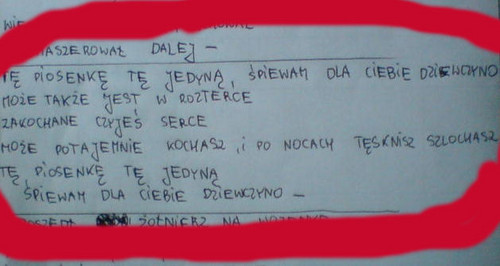 MASZEROWAŁ DALEJ —
TĘ PIOSENKĘ TĘ JEDYNĄ, ŚPIEWAM DLA CIEBIE DZIEWCZYNO
MOŻE TAKŻE JEST W ROZTERCE
ZAKOCHANE CZYJEŚ SERCE
MOŻE POTAJEMNIE KOCHASZ, I PO NOCACH TĘSKNISZ SZLOCHASZ
TĘ PIOSENKĘ TĘ JEDYNĄ
ŚPIEWAM DLA CIEBIE DZIEWCZYNO —
ŻOŁNIERZ NA